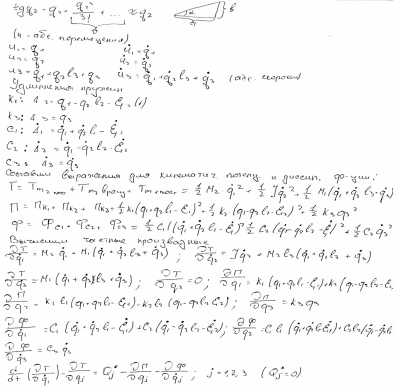 tg q₂ = q₂ + q₂³/3! + ... ≈ q₂
(и - абс. перемещения)
u₁ = q₁    u̇₁ = q̇₁
u₂ = q₂    u̇₂ = q̇₂
u₃ = q₁ + q₂l₃ + q₃    u̇₃ = q̇₁ + q̇₂l₃ + q̇₃ (абс. скорости)
Удлинения пружин
K₁: Δ = q₁ - q₂l₂ - ξ₁(t)
K₃: Δ₃ = q₃
C₁: Δ̇₁ = q̇₁ + q̇₂l₁ - ξ̇₁
C₂: Δ̇₂ = q̇₁ - q̇₂l₂ - ξ̇₂
C₃: Δ̇₃ = q̇₃
Составим выражения для кинетич. потенц. и диссип. функции:
T = T_m₂ пост + T_m₂ вращ + T_m₁ пост = ½ M₂ q̇₁² + ½ Jq̇₂² + ½ M₁(q̇₁ + q̇₂l₃ + q̇₃)²
П = Пк₁ + Пк₂ + Пк₃ = ½ k₁(q₁ + q₂l₁ - ξ₁)² + ½ k₂(q₁ - q₂l₂ - ξ₂)² + ½ k₃q₃²
Ф = Фс₁ + Фс₂ + Фс₃ = ½ C₁(q̇₁ + q̇₂l₁ - ξ̇₁)² + ½ C₂(q̇₁ - q̇₂l₂ - ξ̇₂)² + ½ C₃q̇₃²
Вычислим частные производные
∂T/∂q̇₁ = M₂q̇₁ + M₁(q̇₁ + q̇₂l₃ + q̇₃); ∂T/∂q̇₂ = Jq̇₂ + M₁l₃(q̇₁ + q̇₂l₃ + q̇₃)
∂T/∂q̇₃ = M₁(q̇₁ + q̇₂l₃ + q̇₃); ∂T/∂q₁ = 0; ∂П/∂q₁ = k₁(q₁ + q₂l₁ - ξ₁) + k₂(q₁ - q₂l₂ - ξ₂)
∂П/∂q₂ = k₁l₁(q₁ + q₂l₁ - ξ₁) - k₂l₂(q₁ - q₂l₂ - ξ₂); ∂П/∂q₃ = k₃q₃
∂Ф/∂q̇₁ = C₁(q̇₁ + q̇₂l₁ - ξ̇₁) + C₂(q̇₁ - q̇₂l₂ - ξ̇₂); ∂Ф/∂q̇₂ = C₁l₁(q̇₁ + q̇₂l₁ - ξ̇₁)
∂Ф/∂q̇₃ = C₃q̇₃
d/dt(∂T/∂q̇ⱼ) - ∂T/∂qⱼ = Qⱼ - ∂П/∂qⱼ - ∂Ф/∂q̇ⱼ; j = 1,2,3 (Qⱼ = 0)